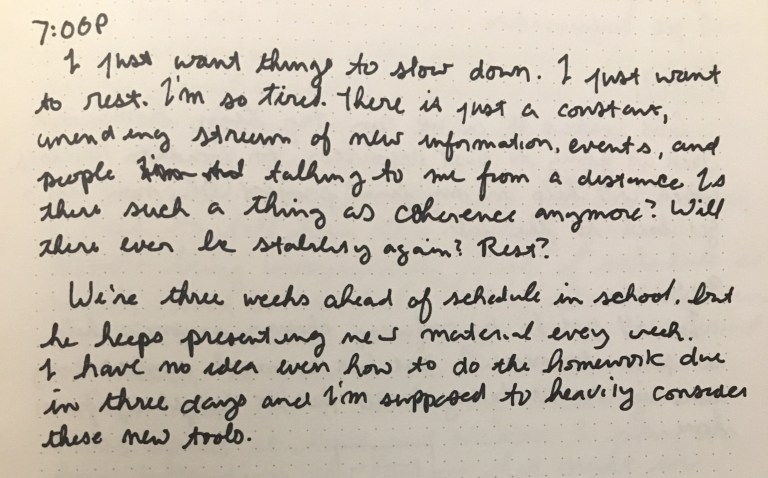 7:06P
I just want things to slow down. I just want
to rest. I'm so tired. There is just a constant,
unending stream of new information, events, and
people talking to me from a distance. Is
there such a thing as coherence anymore? Will
there ever be stability again? Rest?
We're three weeks ahead of schedule in school, but
he keeps presenting new material every week.
I have no idea even how to do the homework due
in three days and I'm supposed to heavily consider
these new tools.